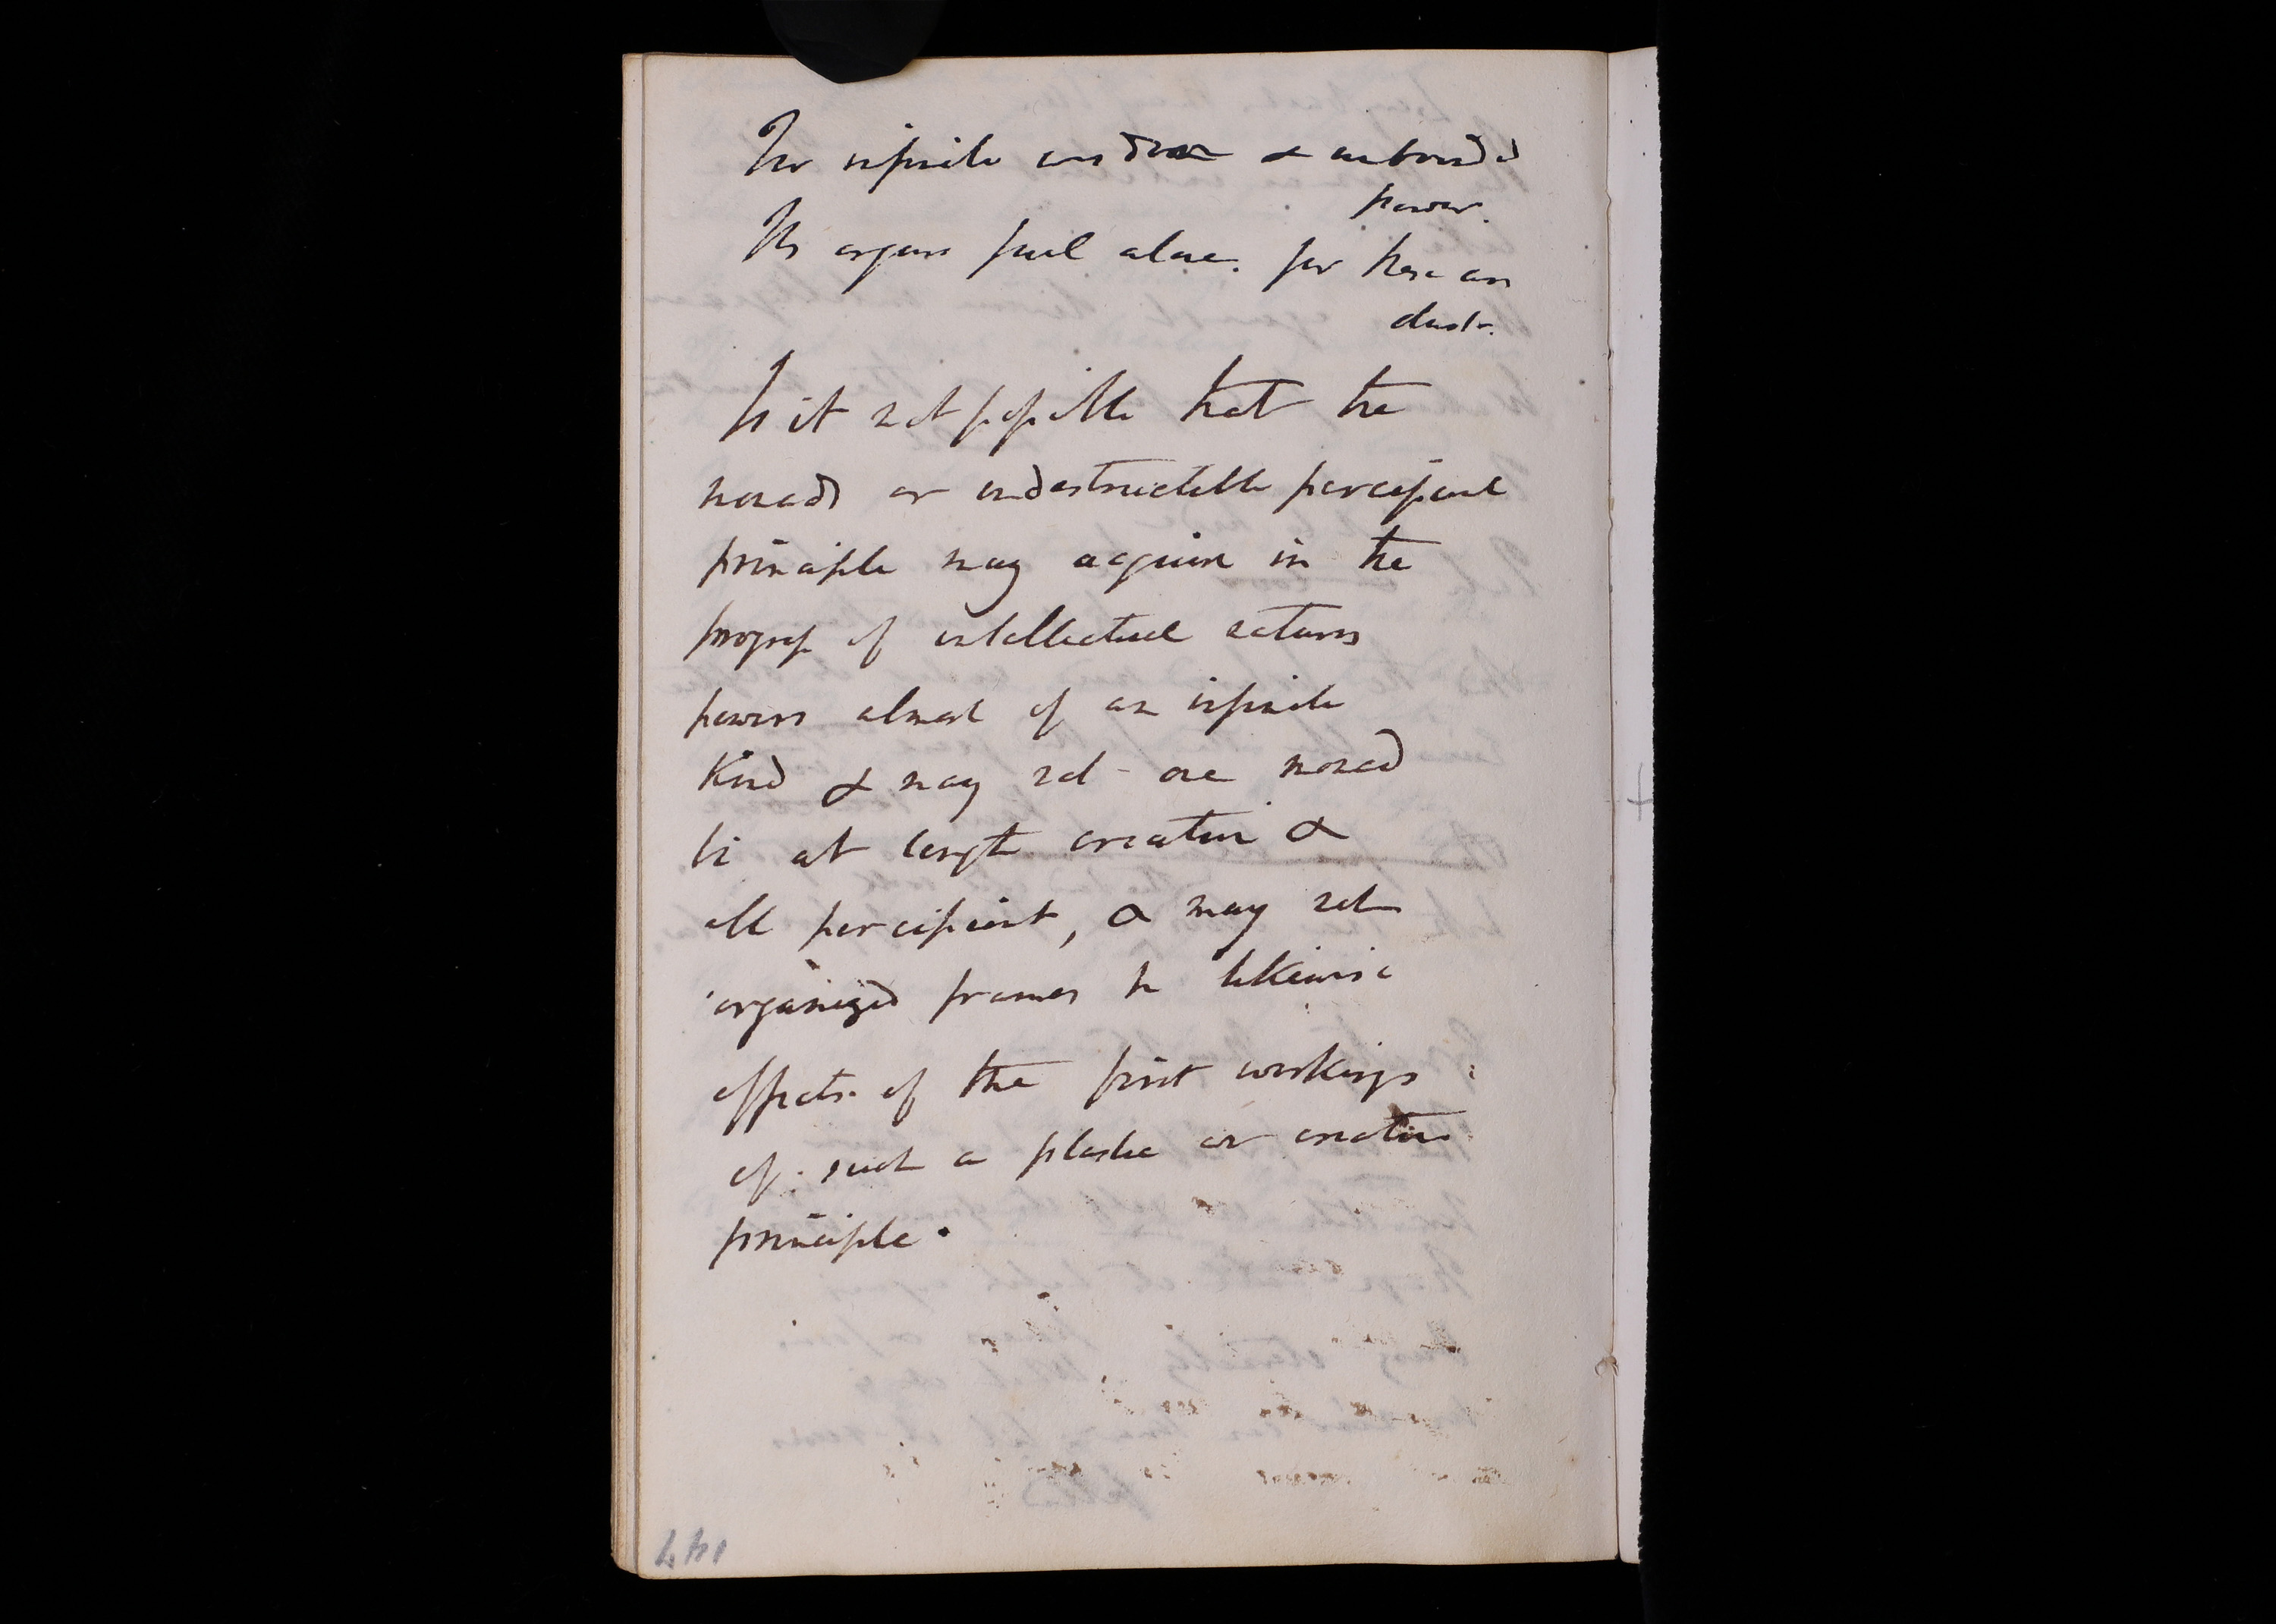 The infinite wisdom & unbounded
power.
The organs feel alone. for these are
dust.
Is it not possible that the
monads or undestructible percipient
principle may acquire in the
progress of intellectual natures
powers almost of an infinite
kind & may not one monad
be at length creative &
all percipient, & may not
organized frames be likewise
effects of the first workings
of such a plastic or creative
principle.